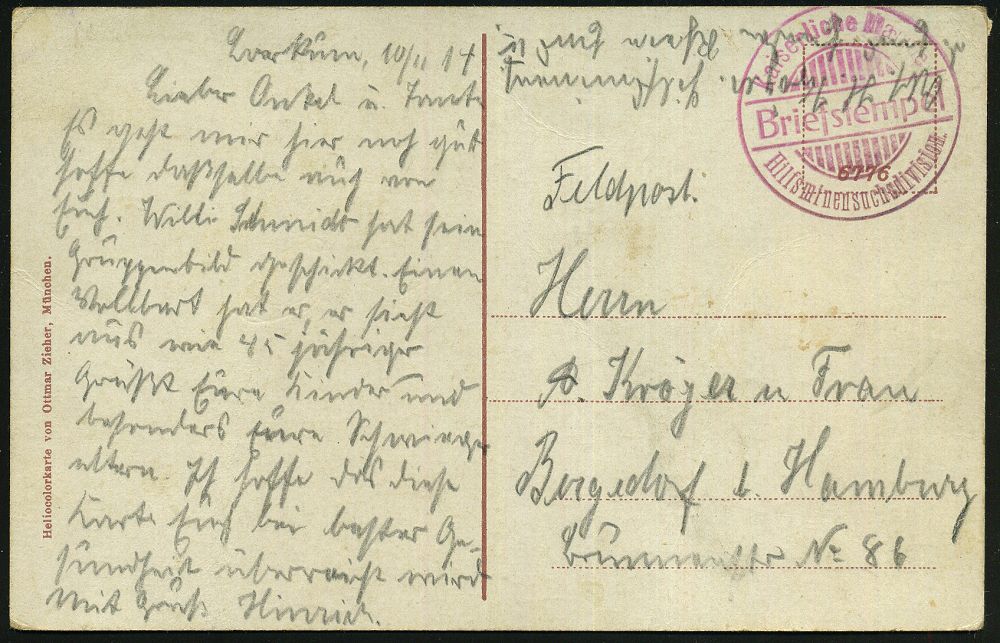 Borkum, 10/11 14
Lieber Onkel u. Tante
Es geht mir hier noch gut
hoffe dasselbe auch von
Euch. Willi Schmidt hat sein
Gruppenbild geschickt. Einen
Vollbart hat er, er sieht
aus wie 45 jähriger
Grüßt Eure Kinder und
besonders Eure Schwieger
eltern. Ich hoffe das diese
Karte Euch bei bester Ge-
sundheit überreicht wird
Mit Gruß Hinrich.
Heliocolorkarte von Ottmar Zieher, München.
Kaiserliche Marine
Briefstempel
Hilfsminensuchdivision.
6776
Feldpost.
Herrn
A. Kröger u Frau
Bergedorf b. Hamburg
Brunnenstr No 86